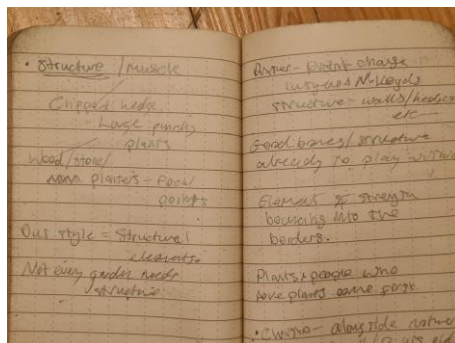 • Structure / Muscle
Clipped hedge
Large punchy
plants
Wood/stone/
planters - Focal
points
Our style = Structural
elements.
Not every garden needs
structure
- Don't change
structure - walls/hedges
etc
Good bones/structure
already to play with
Element of strength
bouncing into the
borders.
Plants & people who
love plants come first.
- alongside nature